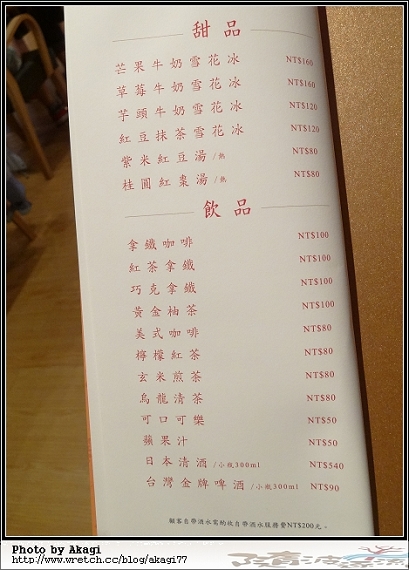 甜品
芒果牛奶雪花冰 NT$160
草莓牛奶雪花冰 NT$160
芋頭牛奶雪花冰 NT$120
紅豆抹茶雪花冰 NT$120
紫米紅豆湯 /熱 NT$80
桂圓紅棗湯 /熱 NT$80
飲品
拿鐵咖啡 NT$100
紅茶拿鐵 NT$100
巧克拿鐵 NT$100
黃金柚茶 NT$100
美式咖啡 NT$80
檸檬紅茶 NT$80
玄米煎茶 NT$80
烏龍清茶 NT$80
可口可樂 NT$50
蘋果汁 NT$50
日本清酒 /小瓶300ml NT$540
台灣金牌啤酒 /小瓶300ml NT$90
顧客自帶酒水需酌收自帶酒水服務費NT$200元。
Photo by Akagi
http://www.wretch.cc/blog/akagi77